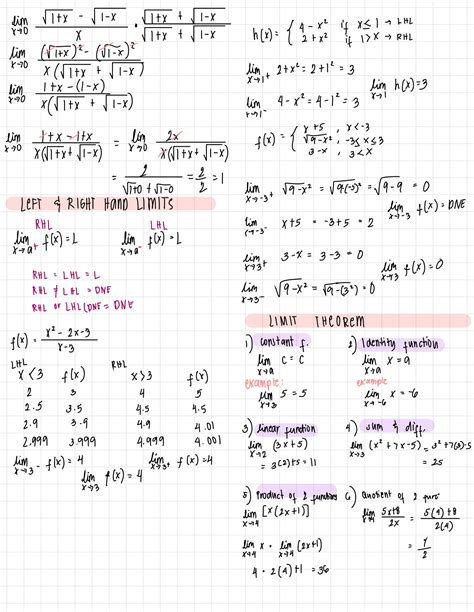 lim x→0 √1+x - √1-x / x · √1+x + √1-x / √1+x + √1-x
lim x→0 (√1+x)² - (√1-x)² / x(√1+x + √1-x)
lim x→0 1+x - (1-x) / x(√1+x + √1-x)
lim x→0 1+x-1+x / x(√1+x + √1-x) = lim x→0 2x / x(√1+x + √1-x)
= 2 / √1+0 + √1-0 = 2/2 = 1
LEFT & RIGHT HAND LIMITS
RHL LHL
lim x→a+ f(x) = L lim x→a- f(x) = L
RHL = LHL = L
RHL ≠ LHL = DNE
RHL or LHL (DNE = DNE
f(x) = x² - 2x-3 / x-3
LHL RHL
x < 3 f(x) x > 3 f(x)
2 3 4 5
2.5 3.5 4.5
2.9 3.9 4.9
2.999 3.999 4.999 4.001
lim x→3- f(x) = 4 lim x→3+ f(x) = 4
lim x→3 f(x) = 4
h(x) = { 4 - x² if x ≤ 1 → LHL
2 + x² if 1 > x → RHL
lim x→1+ 2+x² = 2+1² = 3
lim x→1 h(x) = 3
lim x→1- 4-x² = 4-1² = 3
f(x) = { x+5, x<-3
√9-x², -3≤x≤3
3-x, 3<x
lim x→-3+ √9-x² = √9-(-3)² = √9-9 = 0
lim x→-3 f(x) = DNE
x+5 = -3+5 = 2
lim x→3+ 3-x = 3-3 = 0
lim x→3 f(x) = 0
lim x→3- √9-x² = √9-(3²) = 0
LIMIT THEOREM
1) constant f.
lim x→a C = C
example:
lim x→3 5 = 5
2) Identity function
lim x→a x = a
example
lim x→-6 x = -6
3) linear function
lim x→2 (3x+5)
= 3(2)+5 = 11
4) sum & diff.
lim x→3 (x²+7x-5) = 3²+7(3)-5
= 25
5) Product of 2 functions
lim x→4 [x(2x+1)]
lim x→4 x · lim x→4 (2x+1)
4 · 2(4)+1 = 36
6) Quotient of 2
lim x→4 5x+8 / 2x = 5(4)+8 / 2(4)
= 7/2